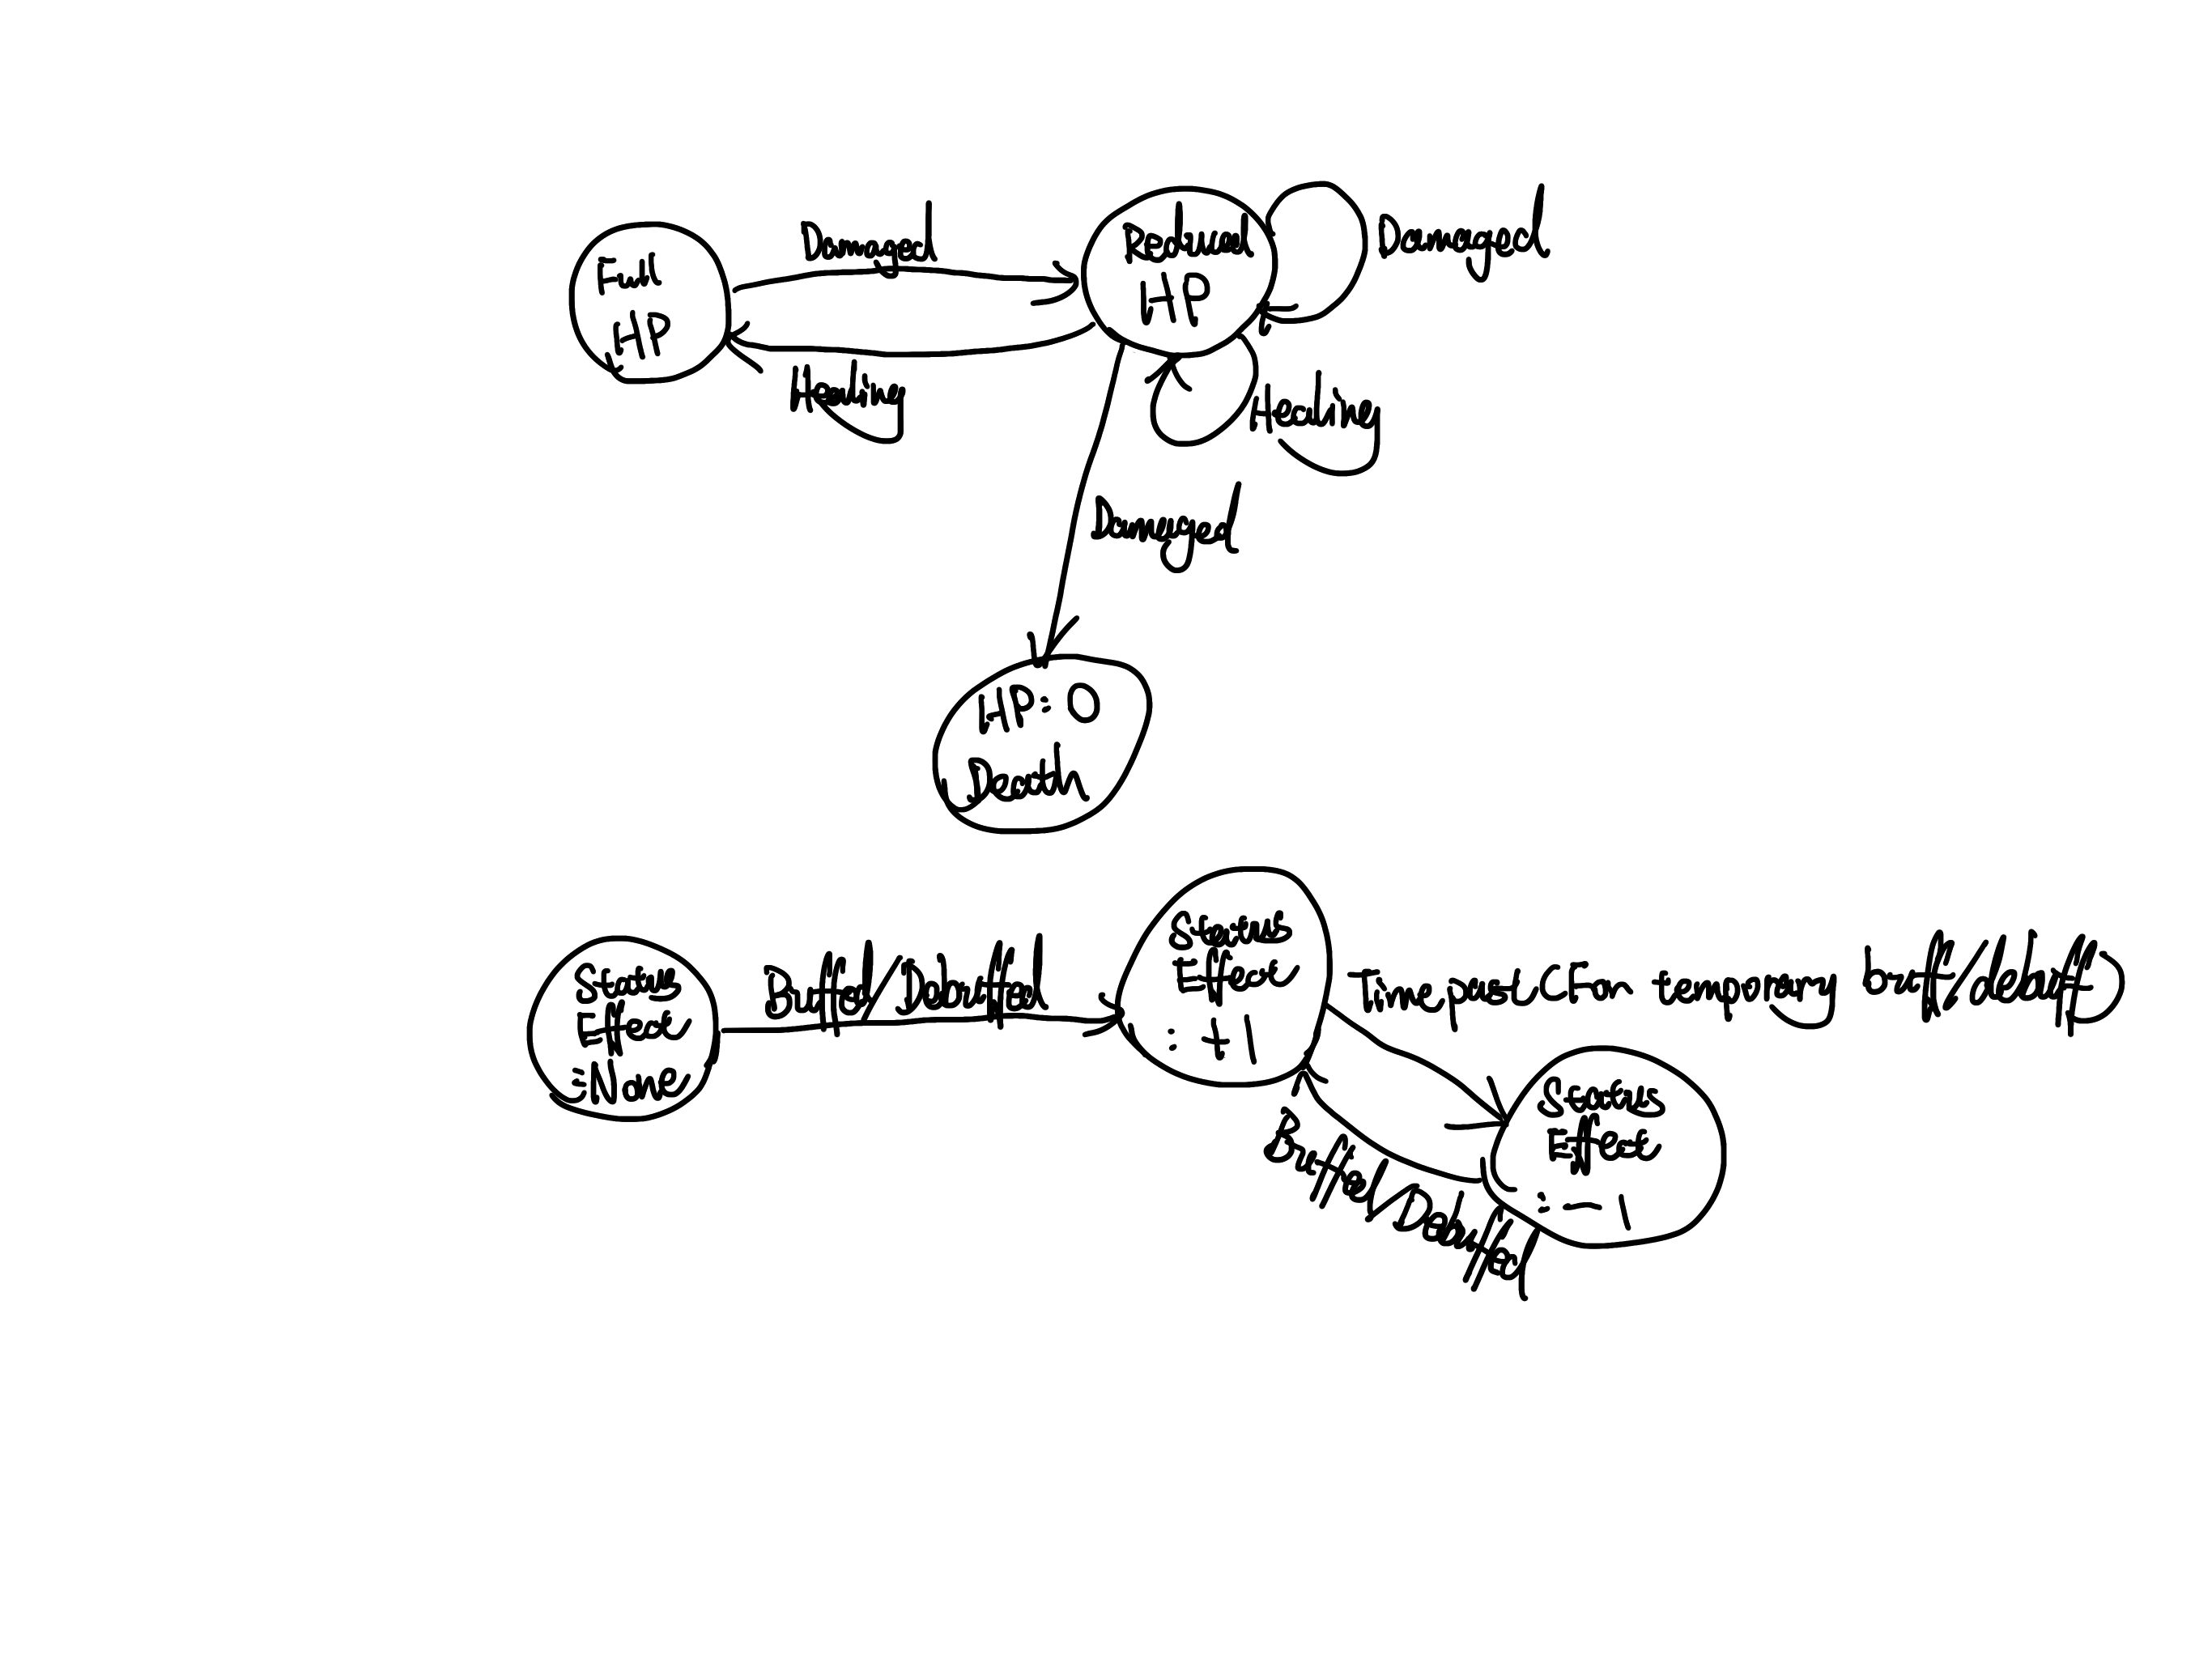 Full
HP
Damaged
Healing
Reduced
HP
Damaged
Healing
Damaged
HP: 0
Death
Status
Effect
: None
Buffed/Debuffed
Status
Effect
: +1
Time past (For temporary buff/debuff)
Buffed/Debuffed
Status
Effect
: -1